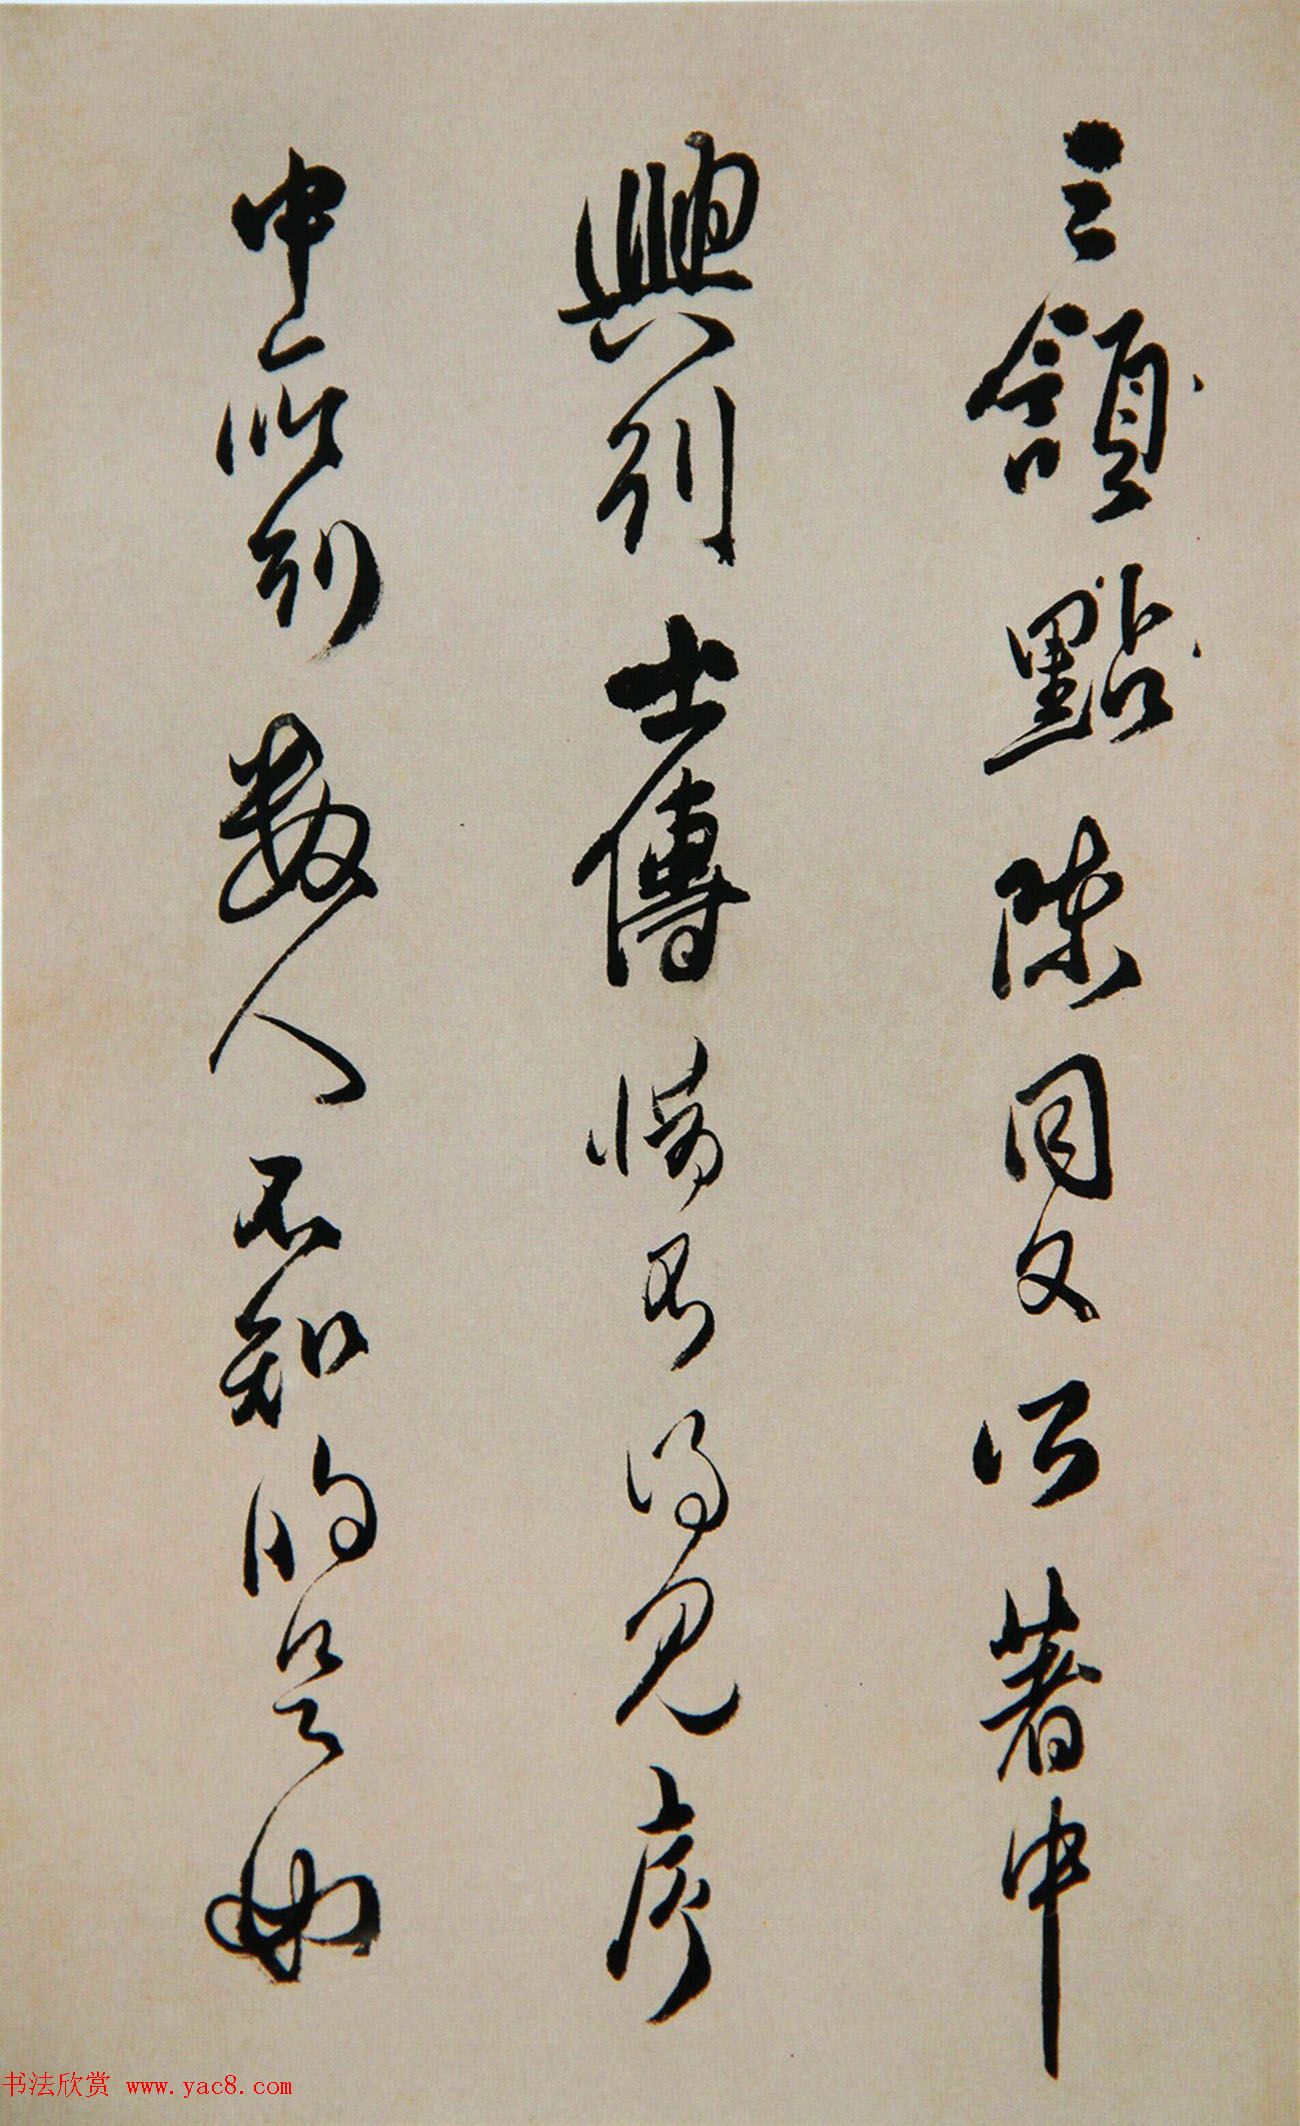 三領點陳同父所著中
興列士傳惜不得見序
中所列數人不知的是如
书法欣赏 www.yac8.com